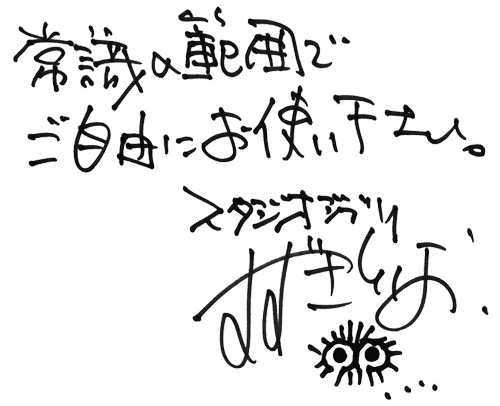 常識の範囲で
ご自由にお使い下さい。
スタジオジブリ
すずき としお